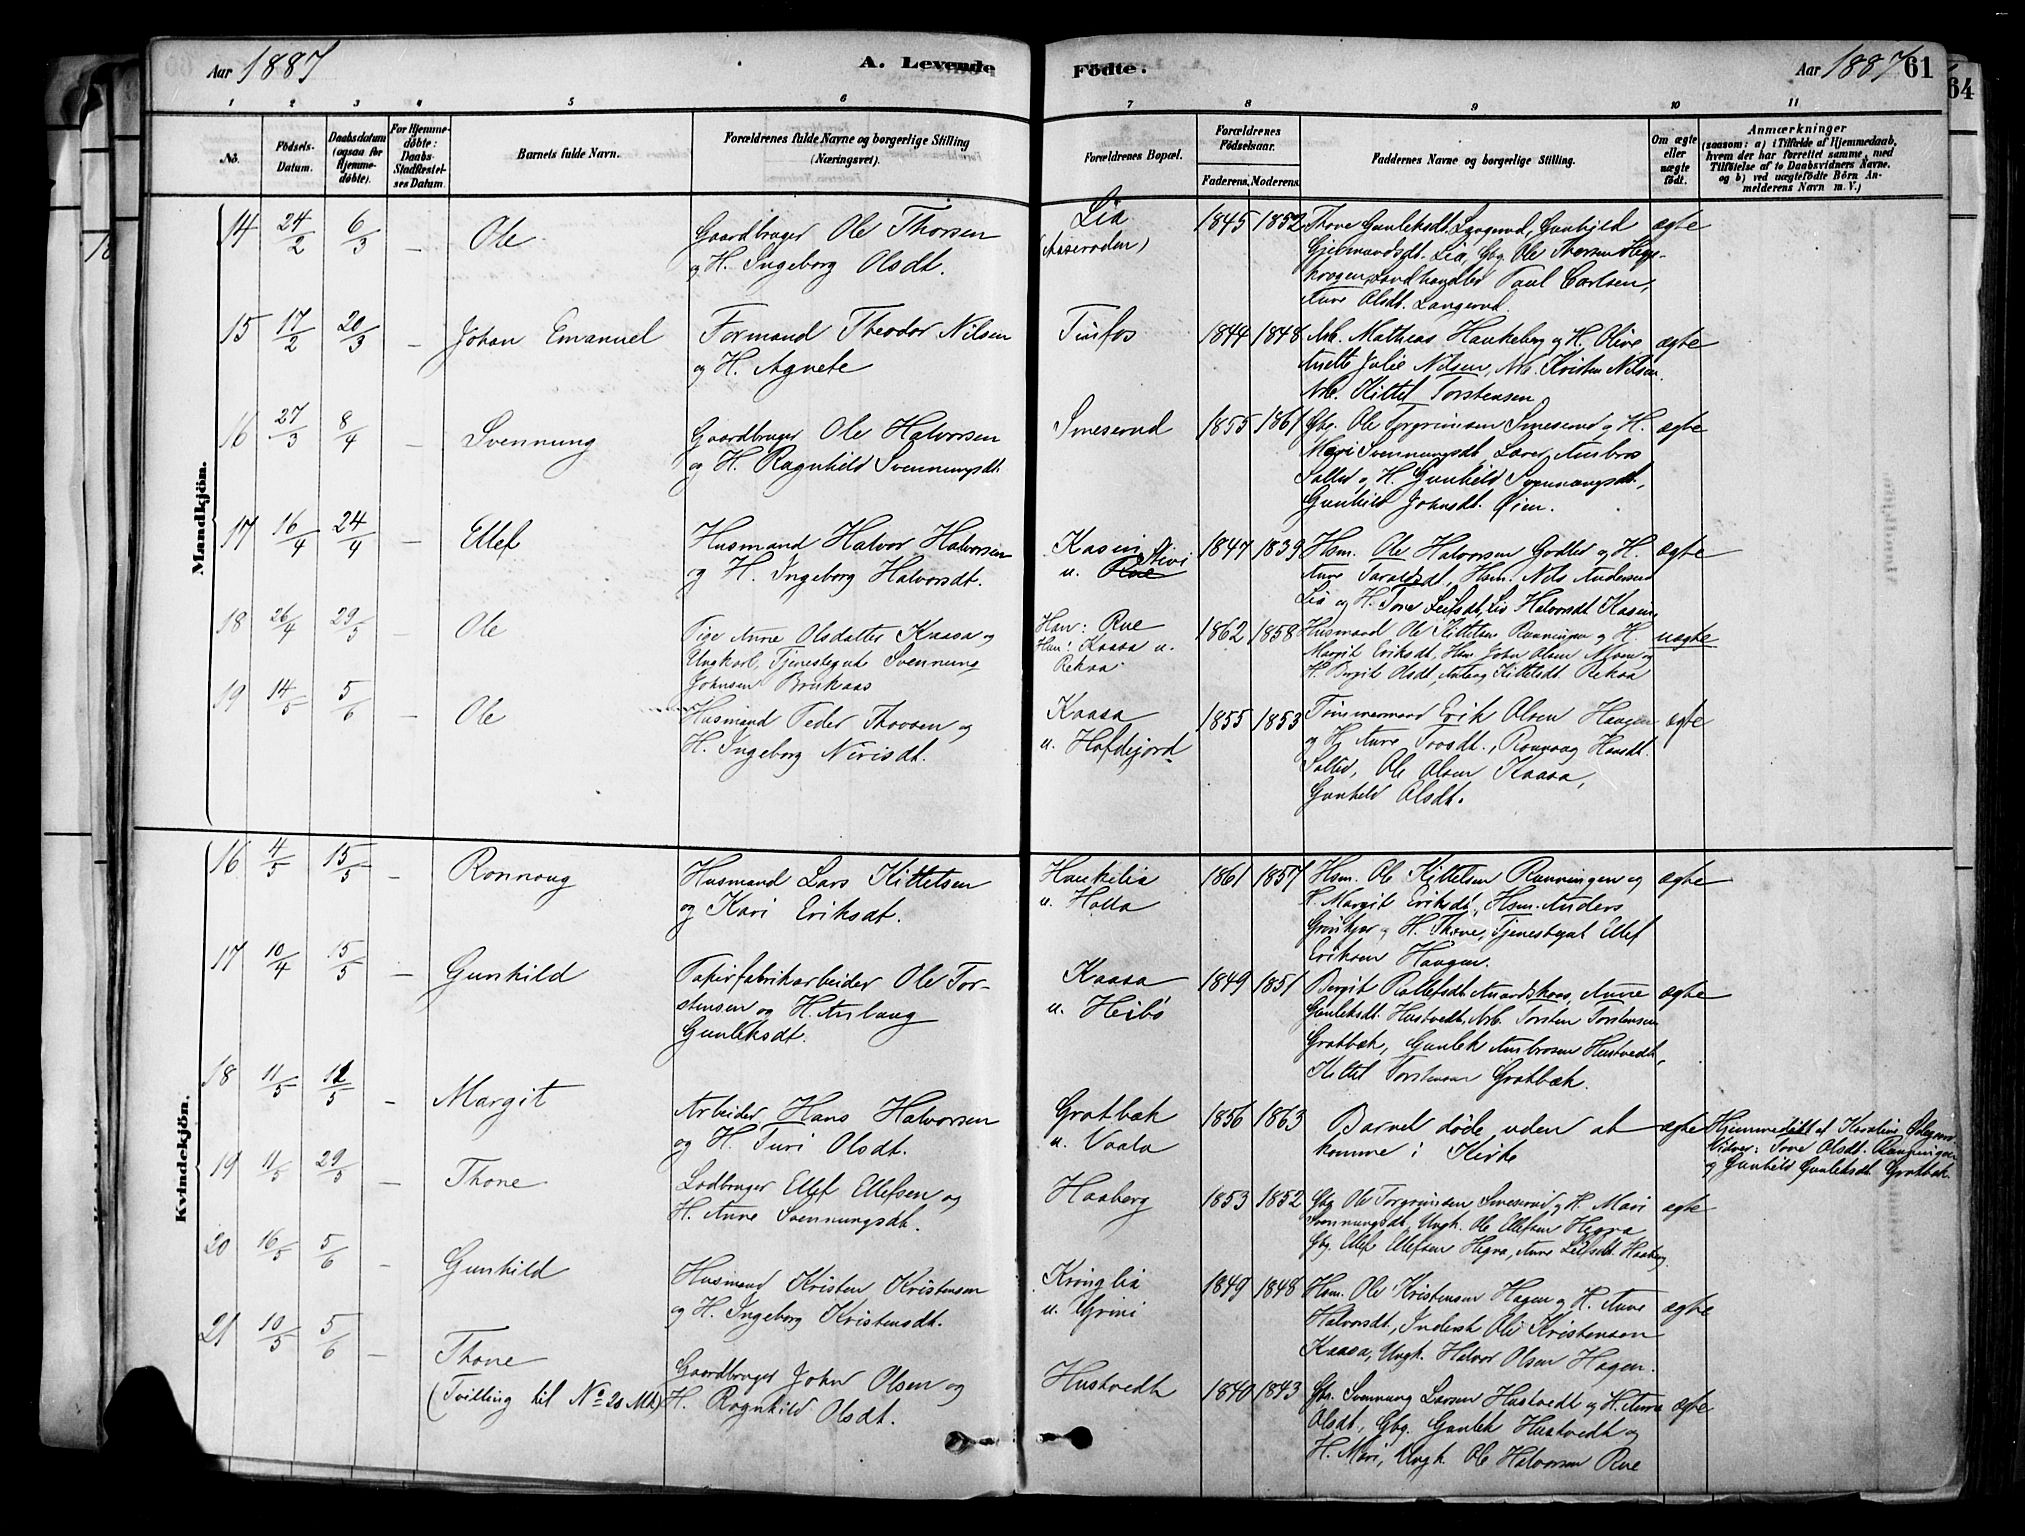 Aar 1887
A. Levende
Födte.
Aar 1887
61
64
1 2 3 4 5 6 7 8 9 10 11
No.
Födsels-
Datum.
Daabsdatum
(ogsaa for
Hjemme-
döbte).
For Hjemme-
döbte:
Daabs-
Stadfæstel-
ses Datum.
Barnets fulde Navn.
Forældrenes fulde Navne og borgerlige Stilling
(Næringsvei).
Forældrenes Bopæl.
Forældrenes
Födselsaar.
Faderens. Moderens.
Faddernes Navne og borgerlige Stilling.
Om ægte
eller
uægte
födt.
Anmærkninger
(saasom: a) i Tilfælde af Hjemmedaab,
hvem der har forrettet samme, med
Tilföielse af to Daabsvidners Navne.
og b) ved uægtefödte Börn An-
melderens Navn m. V.)
Mandkjön.
14 24/2 6/3 – Ole
Gaardbruger Ole Thorsen
og H. Ingeborg Olsdt.
Lia
1845 1852
Thone Gunleksdt. Langerud, Gunhild
Gjermundsdt. Lia, Gbg. Ole Thorsen Hege-
krogen, Landhandler Paul Carlsen,
Anne Olsdt. Langerud
ægte
15 17/2 20/3 – Johan Emanuel
Formand Theodor Nilsen
og H. Agnete
Tinfos
1844 1848
Arb. Mathias Haukeberg og H. Olive
Anette Julie Nilsen, Arb. Kristen Nilsen
Arb. Kittel Torstensen
ægte
16 27/3 8/4 – Svennung
Gaardbruger Ole Halvorsen
og H. Ragnhild Svennungsdt.
Smeserud
1855 1861
Gbg. Ole Torgrimsen Smeserud og H.
Mari Svennungsdt, Lærer Ambros
Solter og H. Gunhild Svennungsdt,
Gunhild Johnsdt. Öien.
ægte
17 16/4 24/4 – Ellef
Husmand Halvor Halvorsen
og H. Ingeborg Halvorsdt.
Kasin
u. Rue
1847 1839
Hsm. Ole Halvorsen og H.
Anne Taraldsdt, Hsm. Nels Andersen
Lia og H. Tone Leifsdt, Liv Halvorsdt Kasin
ægte
18 26/4 29/5 – Ole
Pige Anne Olsdatter Kaasa og
Ungkarl, Tjenestegut Svennung
Johnsen Brukaas
Han: Rue
Hun: Kaasa u.
Rekaa
1862 1858
Husmand Ole Kittelsen Rønningen og H.
Margit Eriksdt, Hsm. John Olsen Moen og
H. Birgit Olsdt, Aslaug Kittelsdt Rekaa
uægte
19 14/5 5/6 – Ole
Husmand Peder Thovsen og
H. Ingeborg Nirisdt.
Kaasa
u. Hofdejord
1855 1853
Tömmermand Erik Olsen Haugen
og H. Anne Tovsdt., Rønnoug Hansdt.
Solter, Ole Olsen Kaasa,
Gunhild Olsdt.
ægte
Kvindekjön.
16 4/5 15/5 – Ronnoug
Husmand Lars Kittelsen
og Kari Eriksdt.
Haukelia
u. Holla
1861 1857
Hsm. Ole Kittelsen Rønningen og
H. Margit Eriksdt, Hsm. Anders
og H. Thone, Tjenestegut Ellef
Eriksen Haugen.
ægte
17 10/4 15/5 – Gunhild
Papirfabrikarbeider Ole Tor-
stensen og H. Anlaug
Gunleksdt.
Kaasa
u. Heibö
1849 1851
Birgit Rollefsdt. Anne
Gunleksdt. Hustvedt, Arb. Torsten Torstensen
Grotbæk, Gunlek Ambrosen Hustvedt,
Kittel Torstensen Grotbæk.
ægte
18 11/5 12/5 – Margit
Arbeider Hans Halvorsen
og H. Turi Olsdt.
Grotbæk
u. Vaala
1856 1863
Barnet døde uden at
komme i Kirke
ægte
Hjemmedöbt af Karoline
Vidner: Tone Olsdt. Rønningen
og Gunhild Gunleksdt. Grotbæk
19 11/5 29/5 – Thone
Lodbruger Ellef Ellefsen og
H. Anne Svennungsdt.
Haaberg
1853 1852
Gbg. Ole Torgrimsen Smeserud og H. Mari
Svennungsdt, Ungk. Ole Ellefsen Hegna
Gbg. Ellef Ellefsen Hegna, Anne Leifsdt. Haaberg
ægte
20 16/5 5/6 – Gunhild
Husmand Kristen Kristensen
og H. Ingeborg Kristensdt.
Kringlia
u. Grini
1849 1848
Hsm. Ole Kristensen Hagen og H. Anne
Halvorsdt, Inderst Ole Kristensen
Kaasa, Ungk. Halvor Olsen Hagen.
ægte
21 10/5 5/6 – Thone
(Tvilling til No 20 Mk)
Gaardbruger John Olsen og
H. Ragnhild Olsdt.
Hustvedt
1840 1843
Gbr. Svennung Larsen Hustvedt og H. Anne
Olsdt, Gbg. Gunlek Hustvedt og
H. Mari, Ungk. Ole Halvorsen Rue
ægte